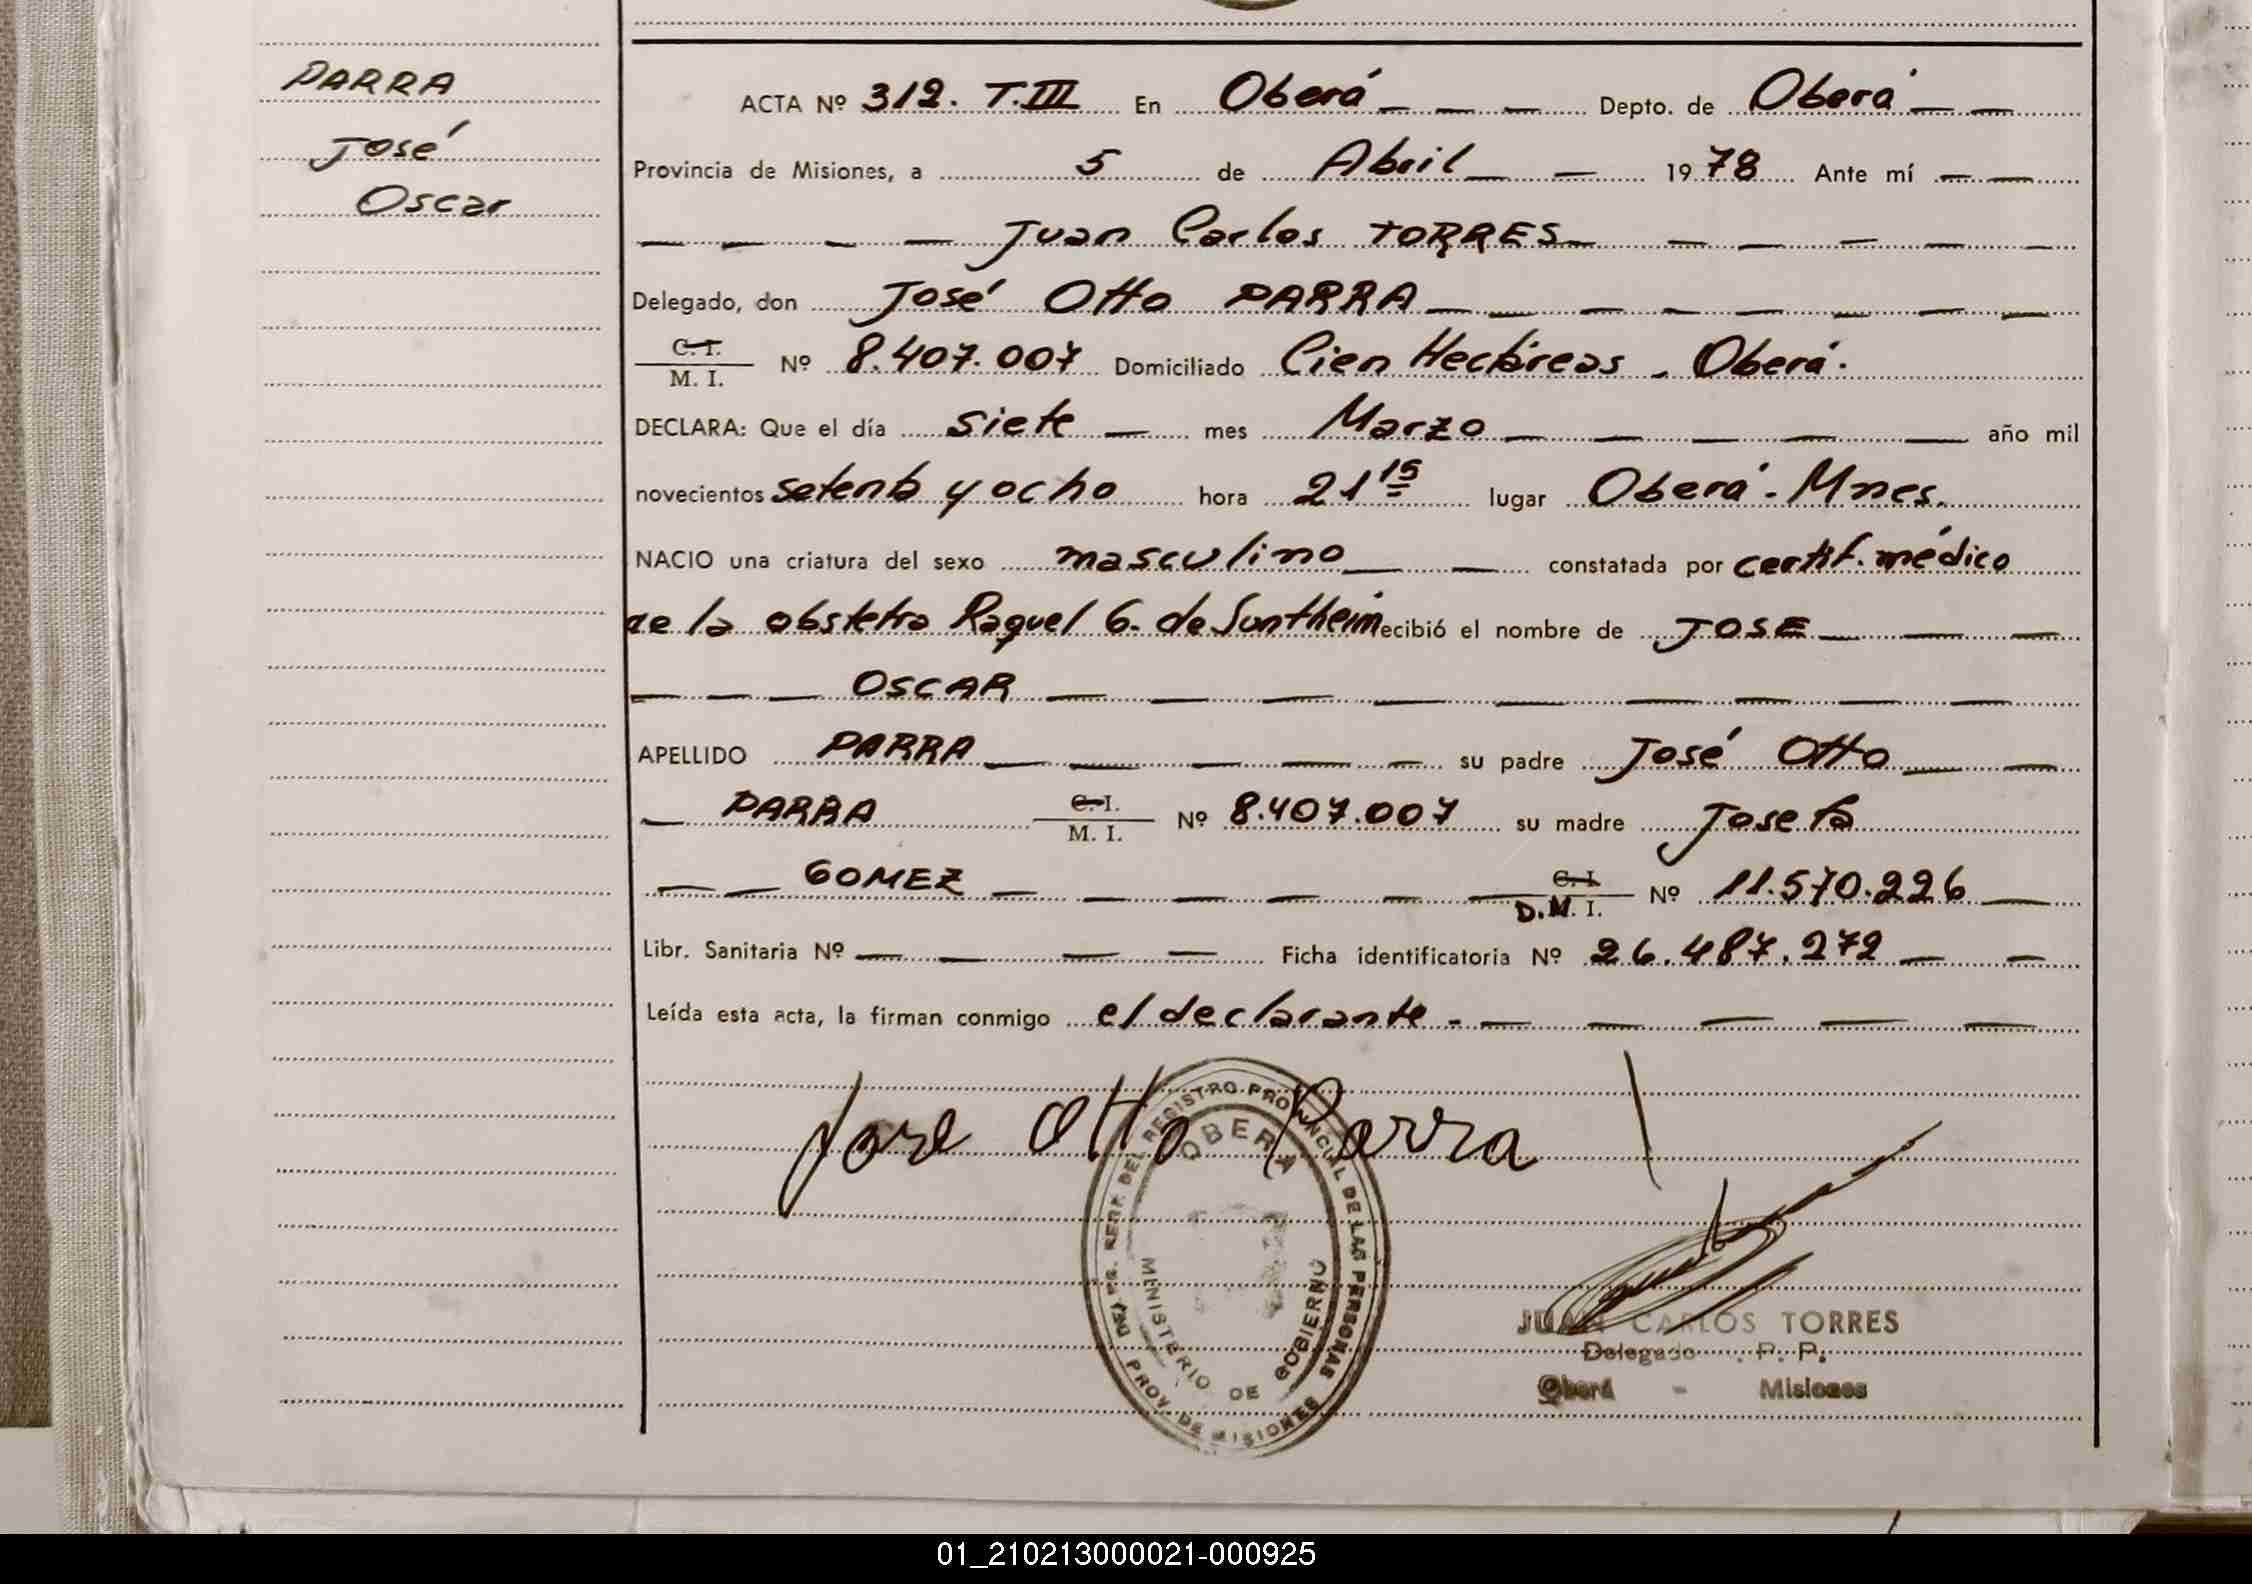 PARRA
José
Oscar
ACTA Nº 312. T.III En Oberá Depto. de Oberá
Provincia de Misiones, a 5 de Abril 1978 Ante mí
Juan Carlos TORRES
Delegado, don José Otto PARRA
C. I.
M. I. Nº 8.407.007 Domiciliado Cien Hectáreas - Oberá.
DECLARA: Que el día siete mes Marzo año mil
novecientos setenta y ocho hora 21 15 lugar Oberá - Mnes.
NACIO una criatura del sexo masculino constatada por certif. médico
de la obstetra Raquel G. de Suntheim ecibió el nombre de JOSE
OSCAR
APELLIDO PARRA su padre José Otto
PARRA C. I.
M. I. Nº 8.407.007 su madre Josefa
GOMEZ C. I.
D.M. I. Nº 11.570.226
Libr. Sanitaria Nº Ficha identificatoria Nº 26.487.272
Leída esta acta, la firman conmigo el declarante -
Jose Otto Parra
DEL REGISTRO PROVINCIAL DE LAS PERSONAS
OBERA
MINISTERIO DE GOBIERNO
PROV. DE MISIONES
JUAN CARLOS TORRES
Delegado P. P.
Oberá - Misiones
01_210213000021-000925